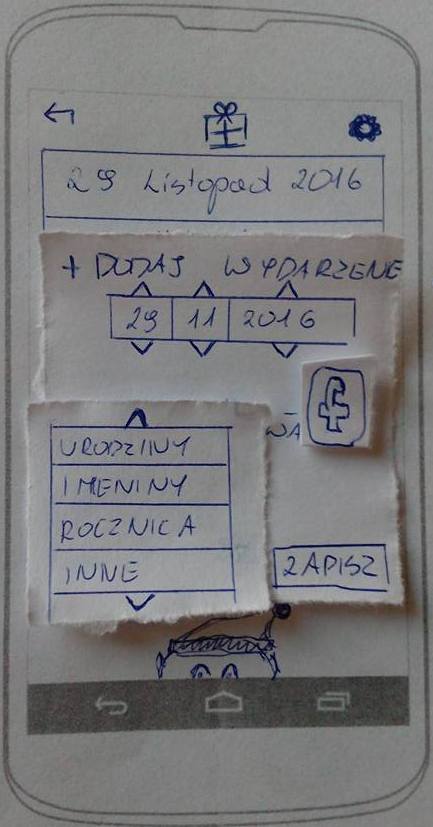 29 Listopad 2016
+ DODAJ WYDARZENIE
29 11 2016
f
URODZINY
IMIENINY
ROCZNICA
INNE
ZAPISZ